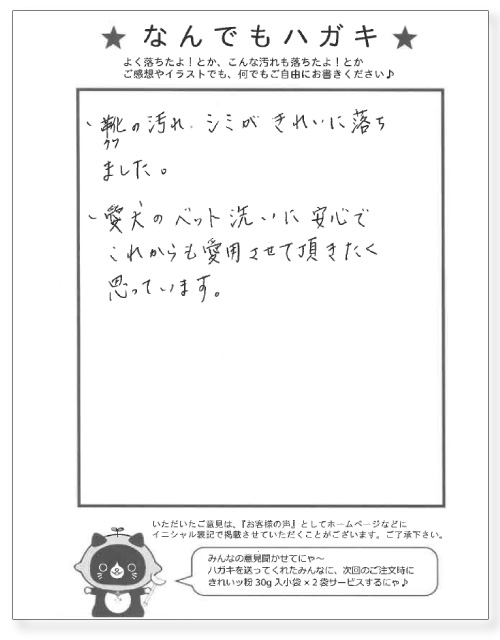 ★ なんでもハガキ ★
よく落ちたよ！とか、こんな汚れも落ちたよ！とか
ご感想やイラストでも、何でもご自由にお書きください♪
、靴の汚れ、シミが きれいに落ち
クツ
ました。
、愛犬のベット洗いに 安心で
これからも愛用させて頂きたく
思っています。
いただいたご意見は、『お客様の声』としてホームページなどに
イニシャル表記で掲載させていただくことがございます。ご了承下さい。
みんなの意見聞かせてにゃ～
ハガキを送ってくれたみんなに、次回のご注文時に
きれいッ粉 30g 入小袋 × 2 袋サービスするにゃ♪